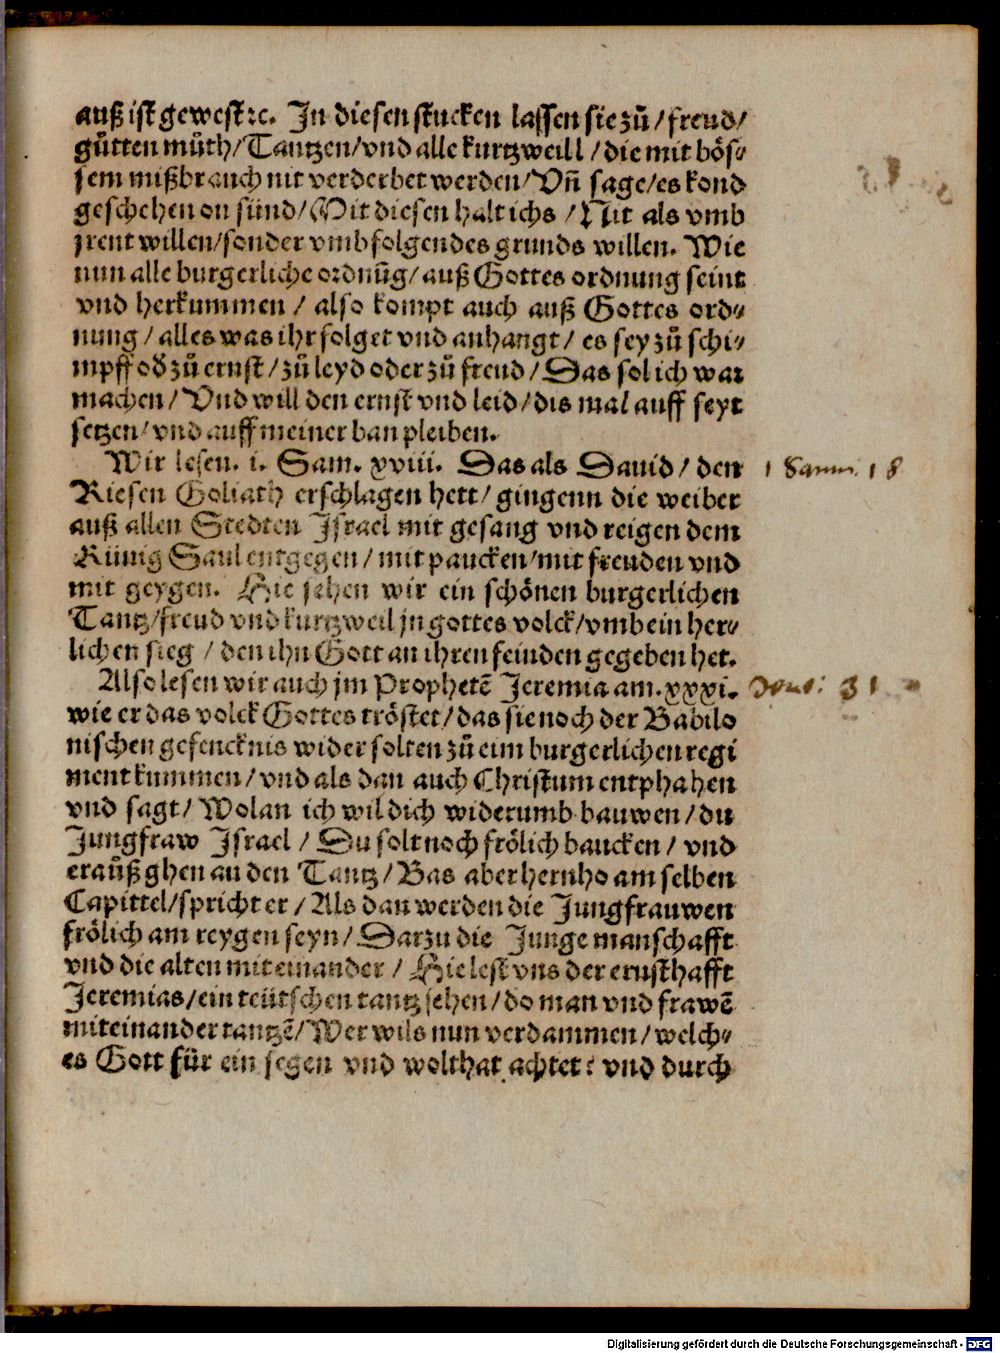 auß ist gewest ꝛc. In diesen stucken lassen sie zů / freud /
gůtten můth / Tantzen / vnd alle kurtzweill / die mit bös⸗
sem mißbrauch nit verderbet werden / Vñ sage / es kond
geschehen on sünd / Mit diesen halt ichs / Nit als vmb
jrent willen / sonder vmb folgendes grunds willen. Wie
nun alle burgerliche ordnūg / auß Gottes ordnung seint
vnd herkummen / also kompt auch auß Gottes ord⸗
nung / alles was ihr folget vnd anhangt / es sey zů schi⸗
mpff od̕ zů ernst / zů leyd oder zů freud / Das sol ich war
machen / Vnd will den ernst vnd leid / dis mal auff seyt
setzen / vnd auff meiner ban pleiben.
Wir lesen. i. Sam. xviii. Das als Dauid / den
1 Samu. 18
Riesen Goliath erschlagen hett / gingenn die weiber
auß allen Stedten Israel mit gesang vnd reigen dem
Künig Saul entgegen / mit paucken / mit freuden vnd
mit geygen. Hie sehen wir ein schönen burgerlichen
Tantz / freud vnd kurtzweil jn gottes volck / vmb ein her⸗
lichen sieg / den ihn Gott an ihren feinden gegeben het.
Also lesen wir auch jm Prophetē Jeremia am. xxxi.
31
wie er das volck Gottes tröstet / das sie noch der Babilo
nischen gefencknis wider solten zů eim burgerlichen regi
ment kummen / vnd als dan auch Christum entphahen
vnd sagt / Wolan ich wil dich widerumb bauwen / du
Jungfraw Israel / Du solt noch frölich baucken / vnd
eraůß ghen an den Tantz / Bas aber hernho am selben
Capittel / spricht er / Als dan werden die Jungfrauwen
frölich am reygen seyn / Darzu die Junge manschafft
vnd die alten mit einander / Hie lest vns der ernsthafft
Jeremias / ein teütschen tantz sehen / do man vnd frawē
miteinander tantzē / Wer wils nun verdammen / welch⸗
es Gott für ein segen vnd wolthat achtet: vnd durch
Digitalisierung gefördert durch die Deutsche Forschungsgemeinschaft - DFG